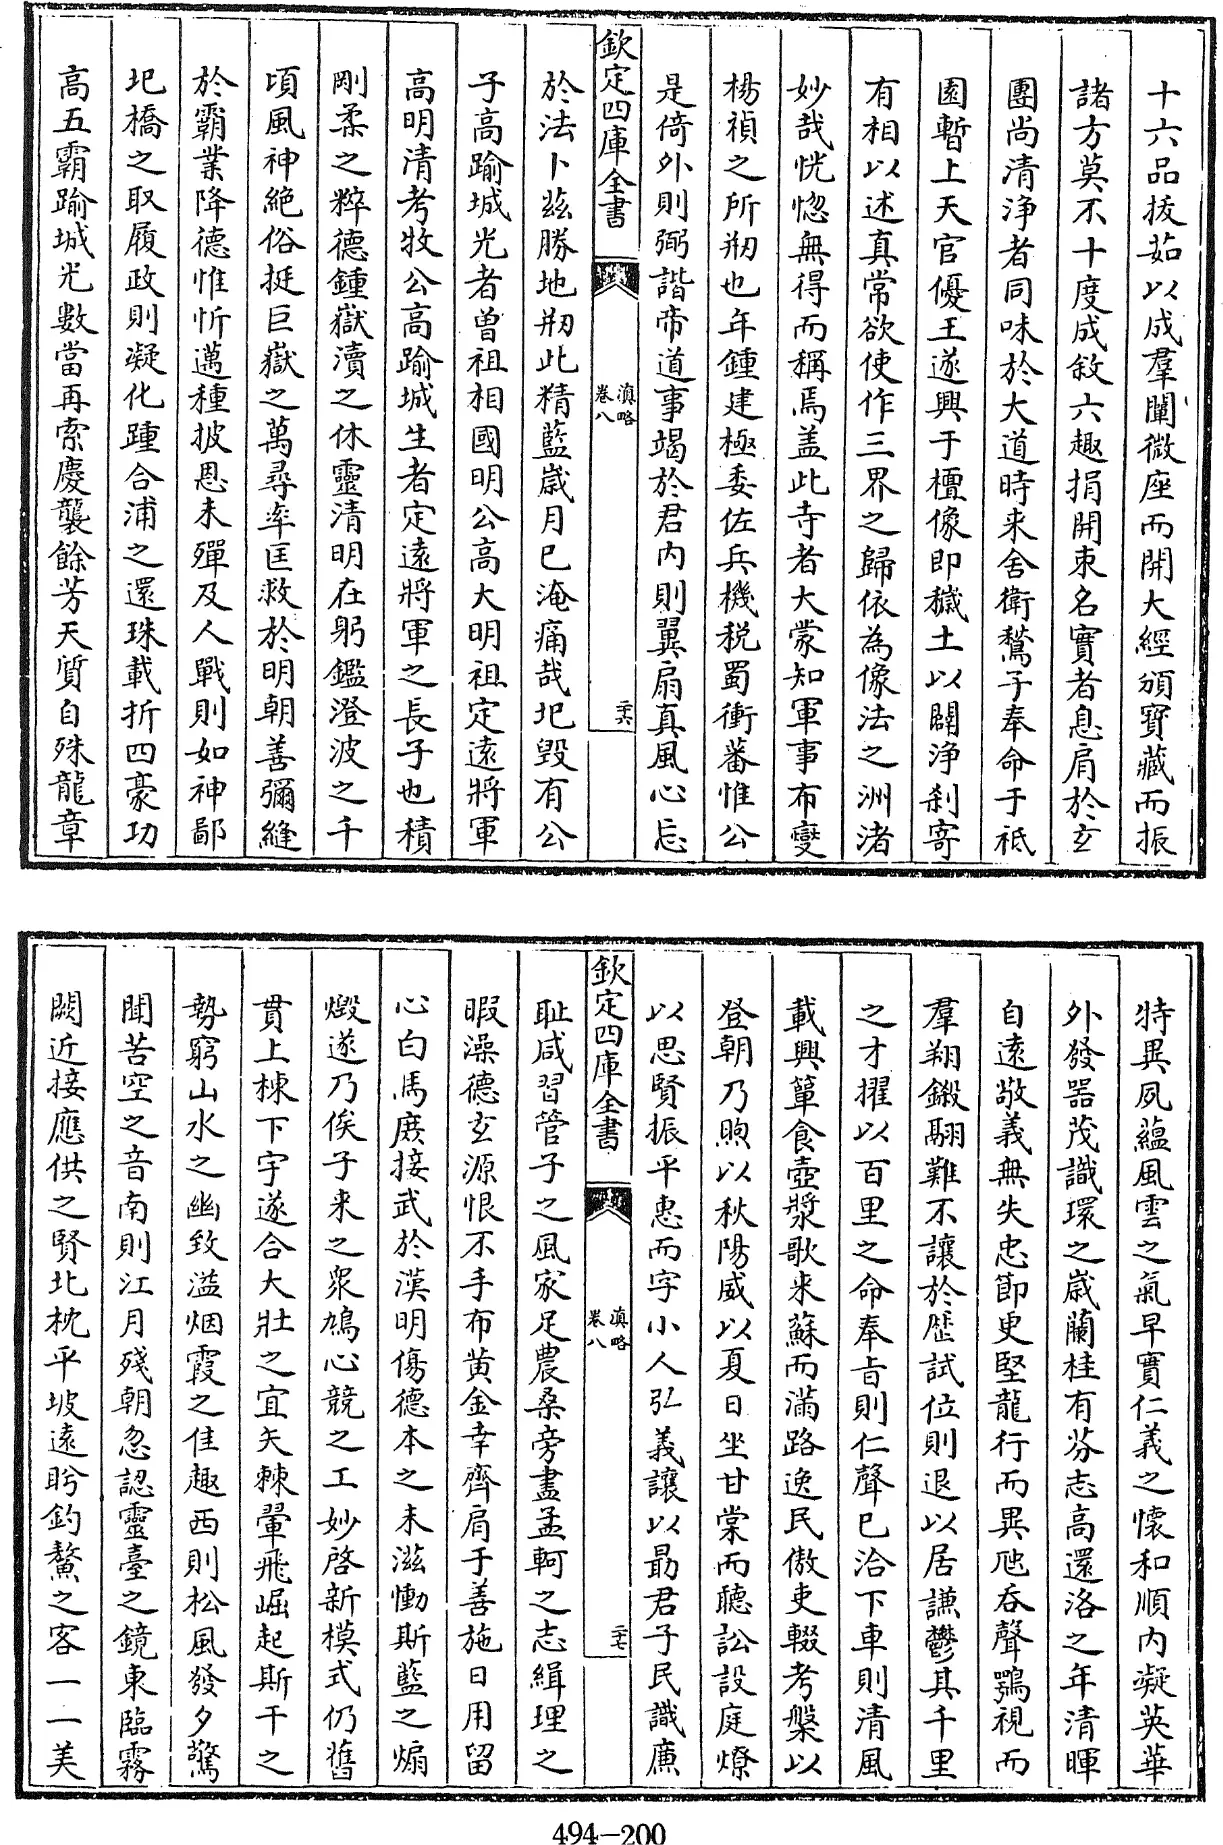 十六品拔茹以成羣闡微座而開大經頒寳藏而振
諸方莫不十度成敘六趣捐開東名實者息肩於玄
團尚清浄者同味於大道時来舍衛鶖子奉命于祗
園暫上天官優王遂興于檀像即穢土以闢浄刹寄
有相以述真常欲使作三界之歸依為像法之洲渚
妙哉恍惚無得而稱焉盖此寺者大蒙知軍事布燮
楊禎之所剏也年鍾建極委佐兵機税蜀衝蕃惟公
是倚外則弼諧帝道事竭於君内則翼扇真風心忘
欽定四庫全書
滇略
卷八
二十六
於法卜兹勝地剏此精藍歲月已淹痛哉圯毁有公
子高踰城光者曽祖相國明公高大明祖定遠將軍
高明清考牧公高踰城生者定遠將軍之長子也積
剛柔之粹德鍾嶽瀆之休靈清明在躬鑑澄波之千
頃風神絶俗挺巨嶽之萬尋率匡救於明朝善彌縫
於霸業降德惟忻邁種披恩未殫及人戰則如神鄙
圯橋之取履政則凝化踵合浦之還珠載折四豪功
高五霸踰城光數當再索慶襲餘芳天質自殊龍章
特異夙藴風雲之氣早實仁義之懷和順内凝英華
外發器茂識環之歲蘭桂有芬志高還洛之年清暉
自遠敬義無失忠節更堅龍行而異虺吞聲鶚視而
羣翔鎩翮難不讓於歴試位則退以居謙鬱其千里
之才擢以百里之命奉㫖則仁聲已洽下車則清風
載興簞食壺漿歌来蘇而滿路逸民傲吏輟考槃以
登朝乃煦以秋陽威以夏日坐甘棠而聽訟設庭燎
以思賢振平惠而字小人弘義讓以勗君子民識廉
欽定四庫全書
滇略
卷八
二十七
耻咸習管子之風家足農桑旁盡孟軻之志緝理之
暇澡德玄源恨不手布黄金幸齊肩于善施日用留
心白馬庶接武於漢明傷德本之未滋慟斯藍之煽
燬遂乃俟子来之衆鳩心競之工妙啓新模式仍舊
貫上棟下宇遂合大壯之宜矢棘翬飛崛起斯干之
勢窮山水之幽致溢烟霞之佳趣西則松風發夕驚
聞苦空之音南則江月殘朝忽認靈臺之鏡東臨霧
闕近接應供之賢北枕平坡遠盻釣鰲之客一一美
494—200